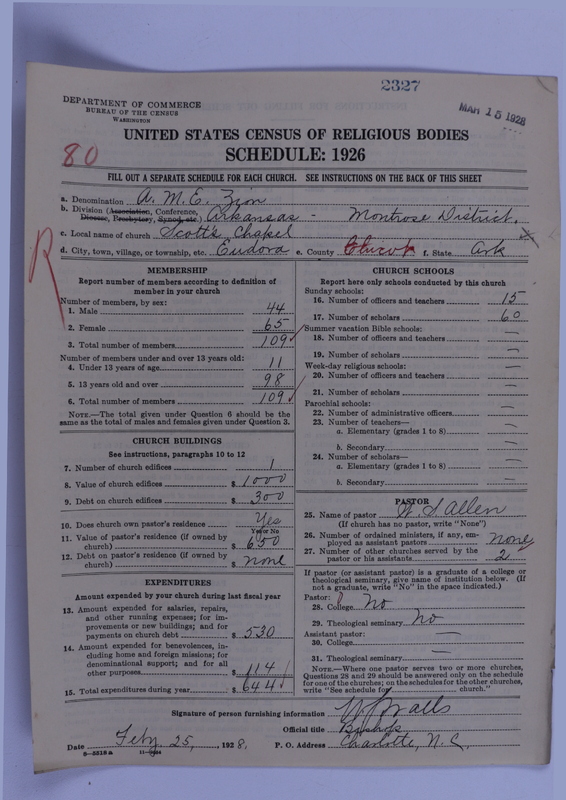 2327
DEPARTMENT OF COMMERCE
BUREAU OF THE CENSUS
WASHINGTON
MAR 15 1928
UNITED STATES CENSUS OF RELIGIOUS BODIES
SCHEDULE: 1926
80
FILL OUT A SEPARATE SCHEDULE FOR EACH CHURCH. SEE INSTRUCTIONS ON THE BACK OF THIS SHEET
a. Denomination A. M. E. Zion
b. Division (Association, Conference, Diocese, Presbytery, Synod, etc.) Arkansas - Montrose District.
c. Local name of church Scotts Chapel
d. City, town, village, or township, etc. Eudora e. County Chicot f. State Ark
R
MEMBERSHIP
Report number of members according to definition of
member in your church
Number of members, by sex:
1. Male 44
2. Female 65
3. Total number of members 109
Number of members under and over 13 years old:
4. Under 13 years of age 11
5. 13 years old and over 98
6. Total number of members 109
NOTE.—The total given under Question 6 should be
the same as the total of males and females given under Question 3.
CHURCH BUILDINGS
See instructions, paragraphs 10 to 12
7. Number of church edifices 1
8. Value of church edifices $ 1000
9. Debt on church edifices $ 300
10. Does church own pastor's residence Yes
Yes or No
11. Value of pastor's residence (if owned by
church) $ 650
12. Debt on pastor's residence (if owned by
church) $ none
EXPENDITURES
Amount expended by your church during last fiscal year
13. Amount expended for salaries, repairs,
and other running expenses; for im-
provements or new buildings; and for
payments on church debt $ 530
14. Amount expended for benevolences, in-
cluding home and foreign missions; for
denominational support; and for all
other purposes $ 114
15. Total expenditures during year $ 644
CHURCH SCHOOLS
Report here only schools conducted by this church
Sunday schools:
16. Number of officers and teachers 15
17. Number of scholars 60
Summer vacation Bible schools:
18. Number of officers and teachers —
19. Number of scholars —
Week-day religious schools:
20. Number of officers and teachers —
21. Number of scholars —
Parochial schools:
22. Number of administrative officers —
23. Number of teachers—
a. Elementary (grades 1 to 8) —
b. Secondary —
24. Number of scholars—
a. Elementary (grades 1 to 8) —
b. Secondary —
PASTOR
25. Name of pastor W. S. Allen
(If church has no pastor, write "None")
26. Number of ordained ministers, if any, em-
ployed as assistant pastors none
27. Number of other churches served by the
pastor or his assistants 2
If pastor (or assistant pastor) is a graduate of a college or
theological seminary, give name of institution below. (If
not a graduate, write "No" in the space indicated.)
Pastor:
28. College No
29. Theological seminary No
Assistant pastor:
30. College —
31. Theological seminary —
NOTE.—Where one pastor serves two or more churches,
Questions 28 and 29 should be answered only on the schedule
for one of the churches; on the schedules for the other churches,
write "See schedule for church."
Signature of person furnishing information W J Walls
Official title Bishop
Date Feby. 25, 1928. P. O. Address Charlotte, N. C.
8-5518 a